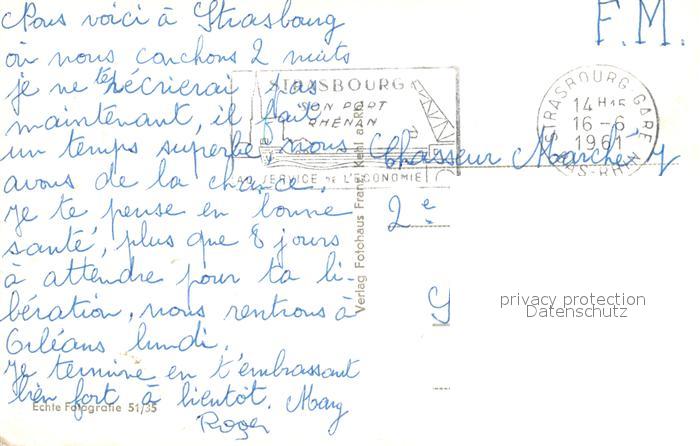 Nous voici à Strasbourg
où nous couchons 2 nuits
je ne te récrierai pas
maintenant, il fait
un temps superbe, nous
avons de la chance.
Je te pense en bonne
santé, plus que 8 jours
à attendre pour ta li-
bération, nous rentrons à
Orléans lundi.
Je termine en t'embrassant
bien fort à bientôt. Mary
Roger
F.M.
STRASBOURG
SON PORT
RHÉNAN
AU SERVICE DE L'ÉCONOMIE
STRASBOURG-GARE
14 H 15
16-6
1961
BAS-RHIN
Chasseur Marché Y
2e
Verlag Fotohaus Franz, Kehl a. Rh.
Echte Fotografie 51/35
privacy protection
Datenschutz